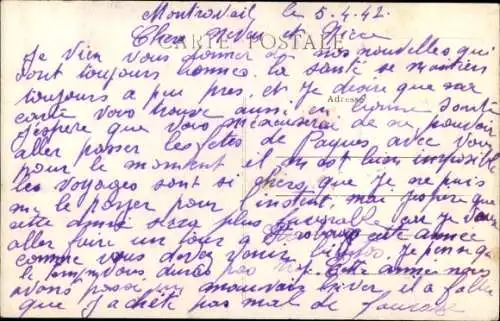 Montrevail le 5.4.42.
Chers et
CARTE POSTALE
Je vien vous donner de nos nouvelles qui
sont toujours bonnes. la santé se maintien
toujours a peu pres, et Je désire que ma
Adresse
carte vous trouve aussi en bonne santé
J'espere que vous m'excuserai de ne pouvoir
aller passer les fetes de Paques avec vous
pour le moment il m'est bien imposible
les voyages sont si chers que Je ne puis
me le payer pour l'instant, mai J'espere que
cette année sera plus favorable car Je veux
aller faire un tour a cette année
comme vous devez venir Je pense que
le temps vous durée pas trop. Cette année nous
avons passé un mauvais hiver et a fallu
que J'achète pas mal de